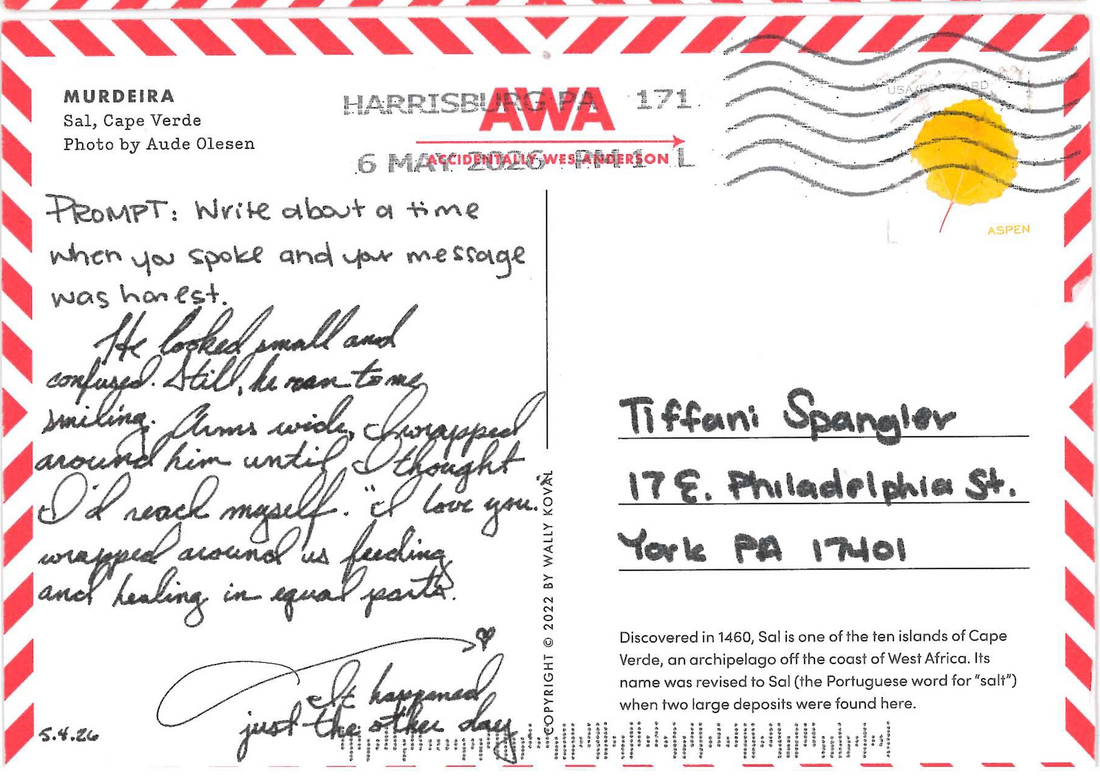 MURDEIRA
Sal, Cape Verde
Photo by Aude Olesen
HARRISBURG PA 171
AWA
ACCIDENTALLY WES ANDERSON
6 MAY 2026 PM 1 L
ASPEN
PROMPT: Write about a time
when you spoke and your message
was honest.
He looked small and
confused. Still, he ran to me
smiling. Arms wide, I wrapped
around him until I thought
I'd reach myself. "I love you."
wrapped around us feeding
and healing in equal parts.
It happened
just the other day
5.4.26
COPYRIGHT © 2022 BY WALLY KOVAL
Tiffani Spangler
17 E. Philadelphia St.
York PA 17401
Discovered in 1460, Sal is one of the ten islands of Cape
Verde, an archipelago off the coast of West Africa. Its
name was revised to Sal (the Portuguese word for "salt")
when two large deposits were found here.